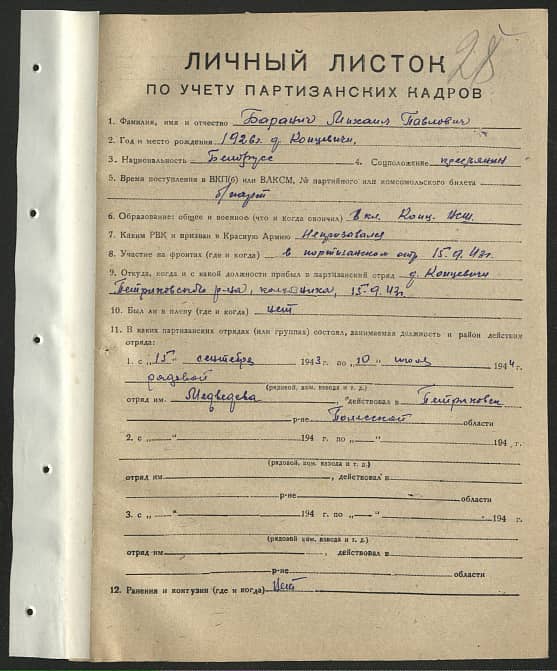 28
ЛИЧНЫЙ ЛИСТОК
ПО УЧЕТУ ПАРТИЗАНСКИХ КАДРОВ
1. Фамилия, имя и отчество Баранич Михаил Павлович
2. Год и место рождения 1926г. д. Концевичи,
3. Национальность Белорусс 4. Соцположение крестьянин
5. Время поступления в ВКП(б) или ВЛКСМ, № партийного или комсомольского билета
б/парт
6. Образование: общее и военное (что и когда окончил) 8 кл. Конц. НСШ.
7. Каким РВК и призван в Красную Армию Непризовался
8. Участие на фронтах (где и когда) в портизанском отр 15.9.43г.
9. Откуда, когда и с какой должности прибыл в партизанский отряд д. Концевичи
Петриковского р-на, 15.9.43г.
10. Был ли в плену (где и когда) нет
11. В каких партизанских отрядах (или группах) состоял, занимаемая должность и район действия
отряда:
1. с „15“ сентября 1943 г. по „10“ июля 1944 г.
рядовой
(рядовой, ком. взвода и т. д.)
отряд им. Медведева, действовал в Петриковск
р-не Полесской области
2. с „ “ 194 г. по „ “ 194 г.
(рядовой, ком. взвода и т. д.)
отряд им. , действовал в
р-не области
3. с „ “ 194 г. по „ “ 194 г.
(рядовой, ком. взвода и т. д.)
отряд им. , действовал в
р-не области
12. Ранения и контузии (где и когда) Нет